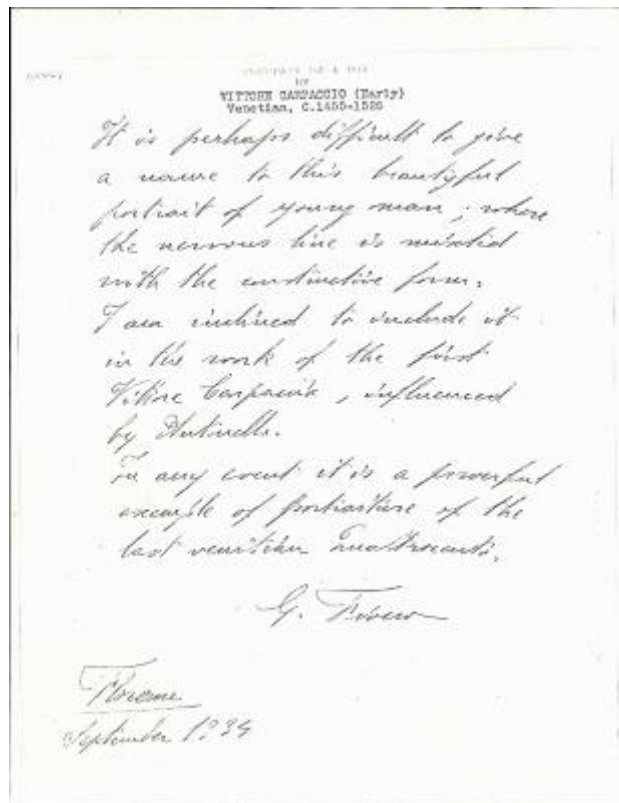 by
VITTORE CARPACCIO (Early)
Venetian, C.1455-1526
It is perhaps difficult to give
a name to this beautyful
portrait of young man, where
the nervous line is
with the constructive form.
I am inclined to include it
in the work of the first
Vittore Carpaccio, influenced
by Antonello.
In any event it is a powerful
example of portraiture of the
last venitian Quattrocento.
G. Fiocco
Florence
September 1934